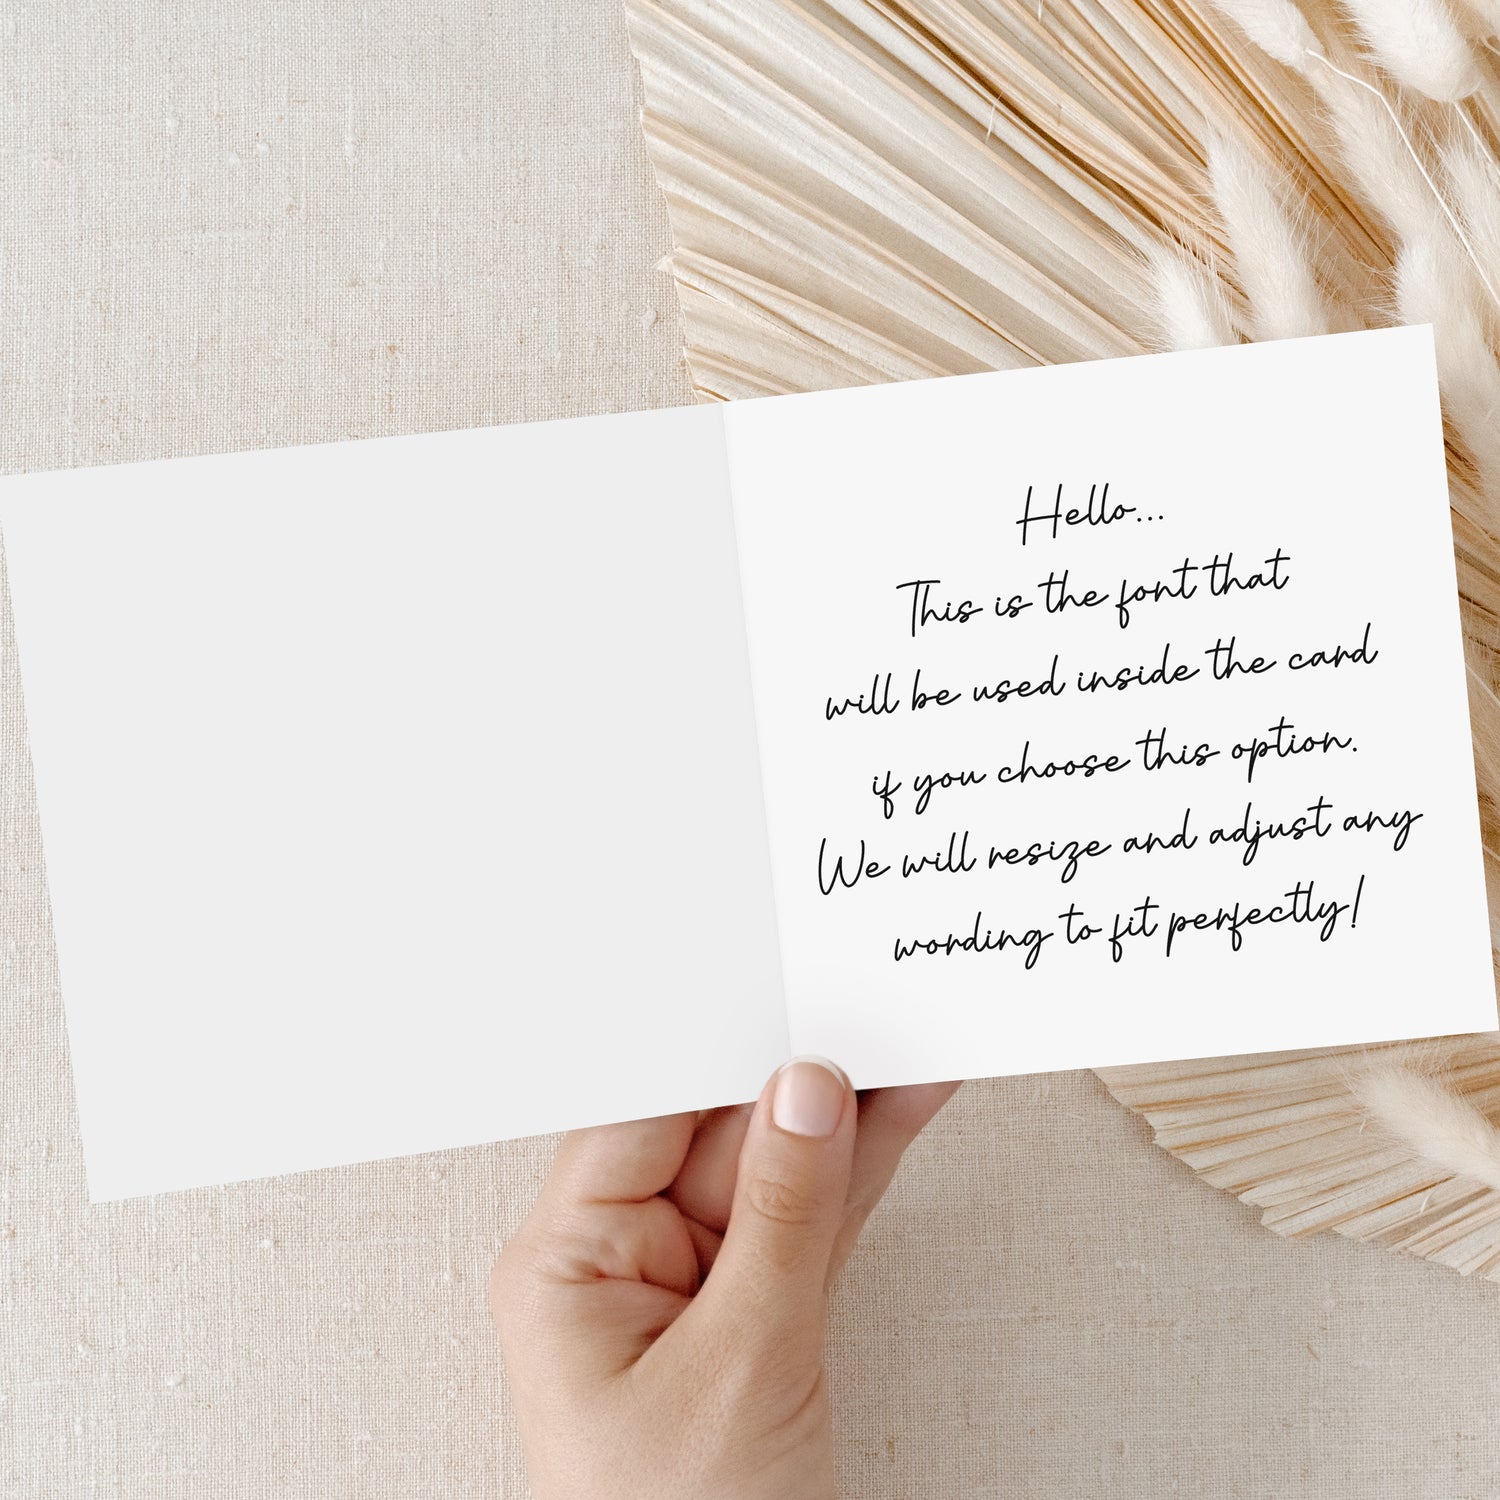 Hello...
This is the font that
will be used inside the card
if you choose this option.
We will resize and adjust any
wording to fit perfectly!